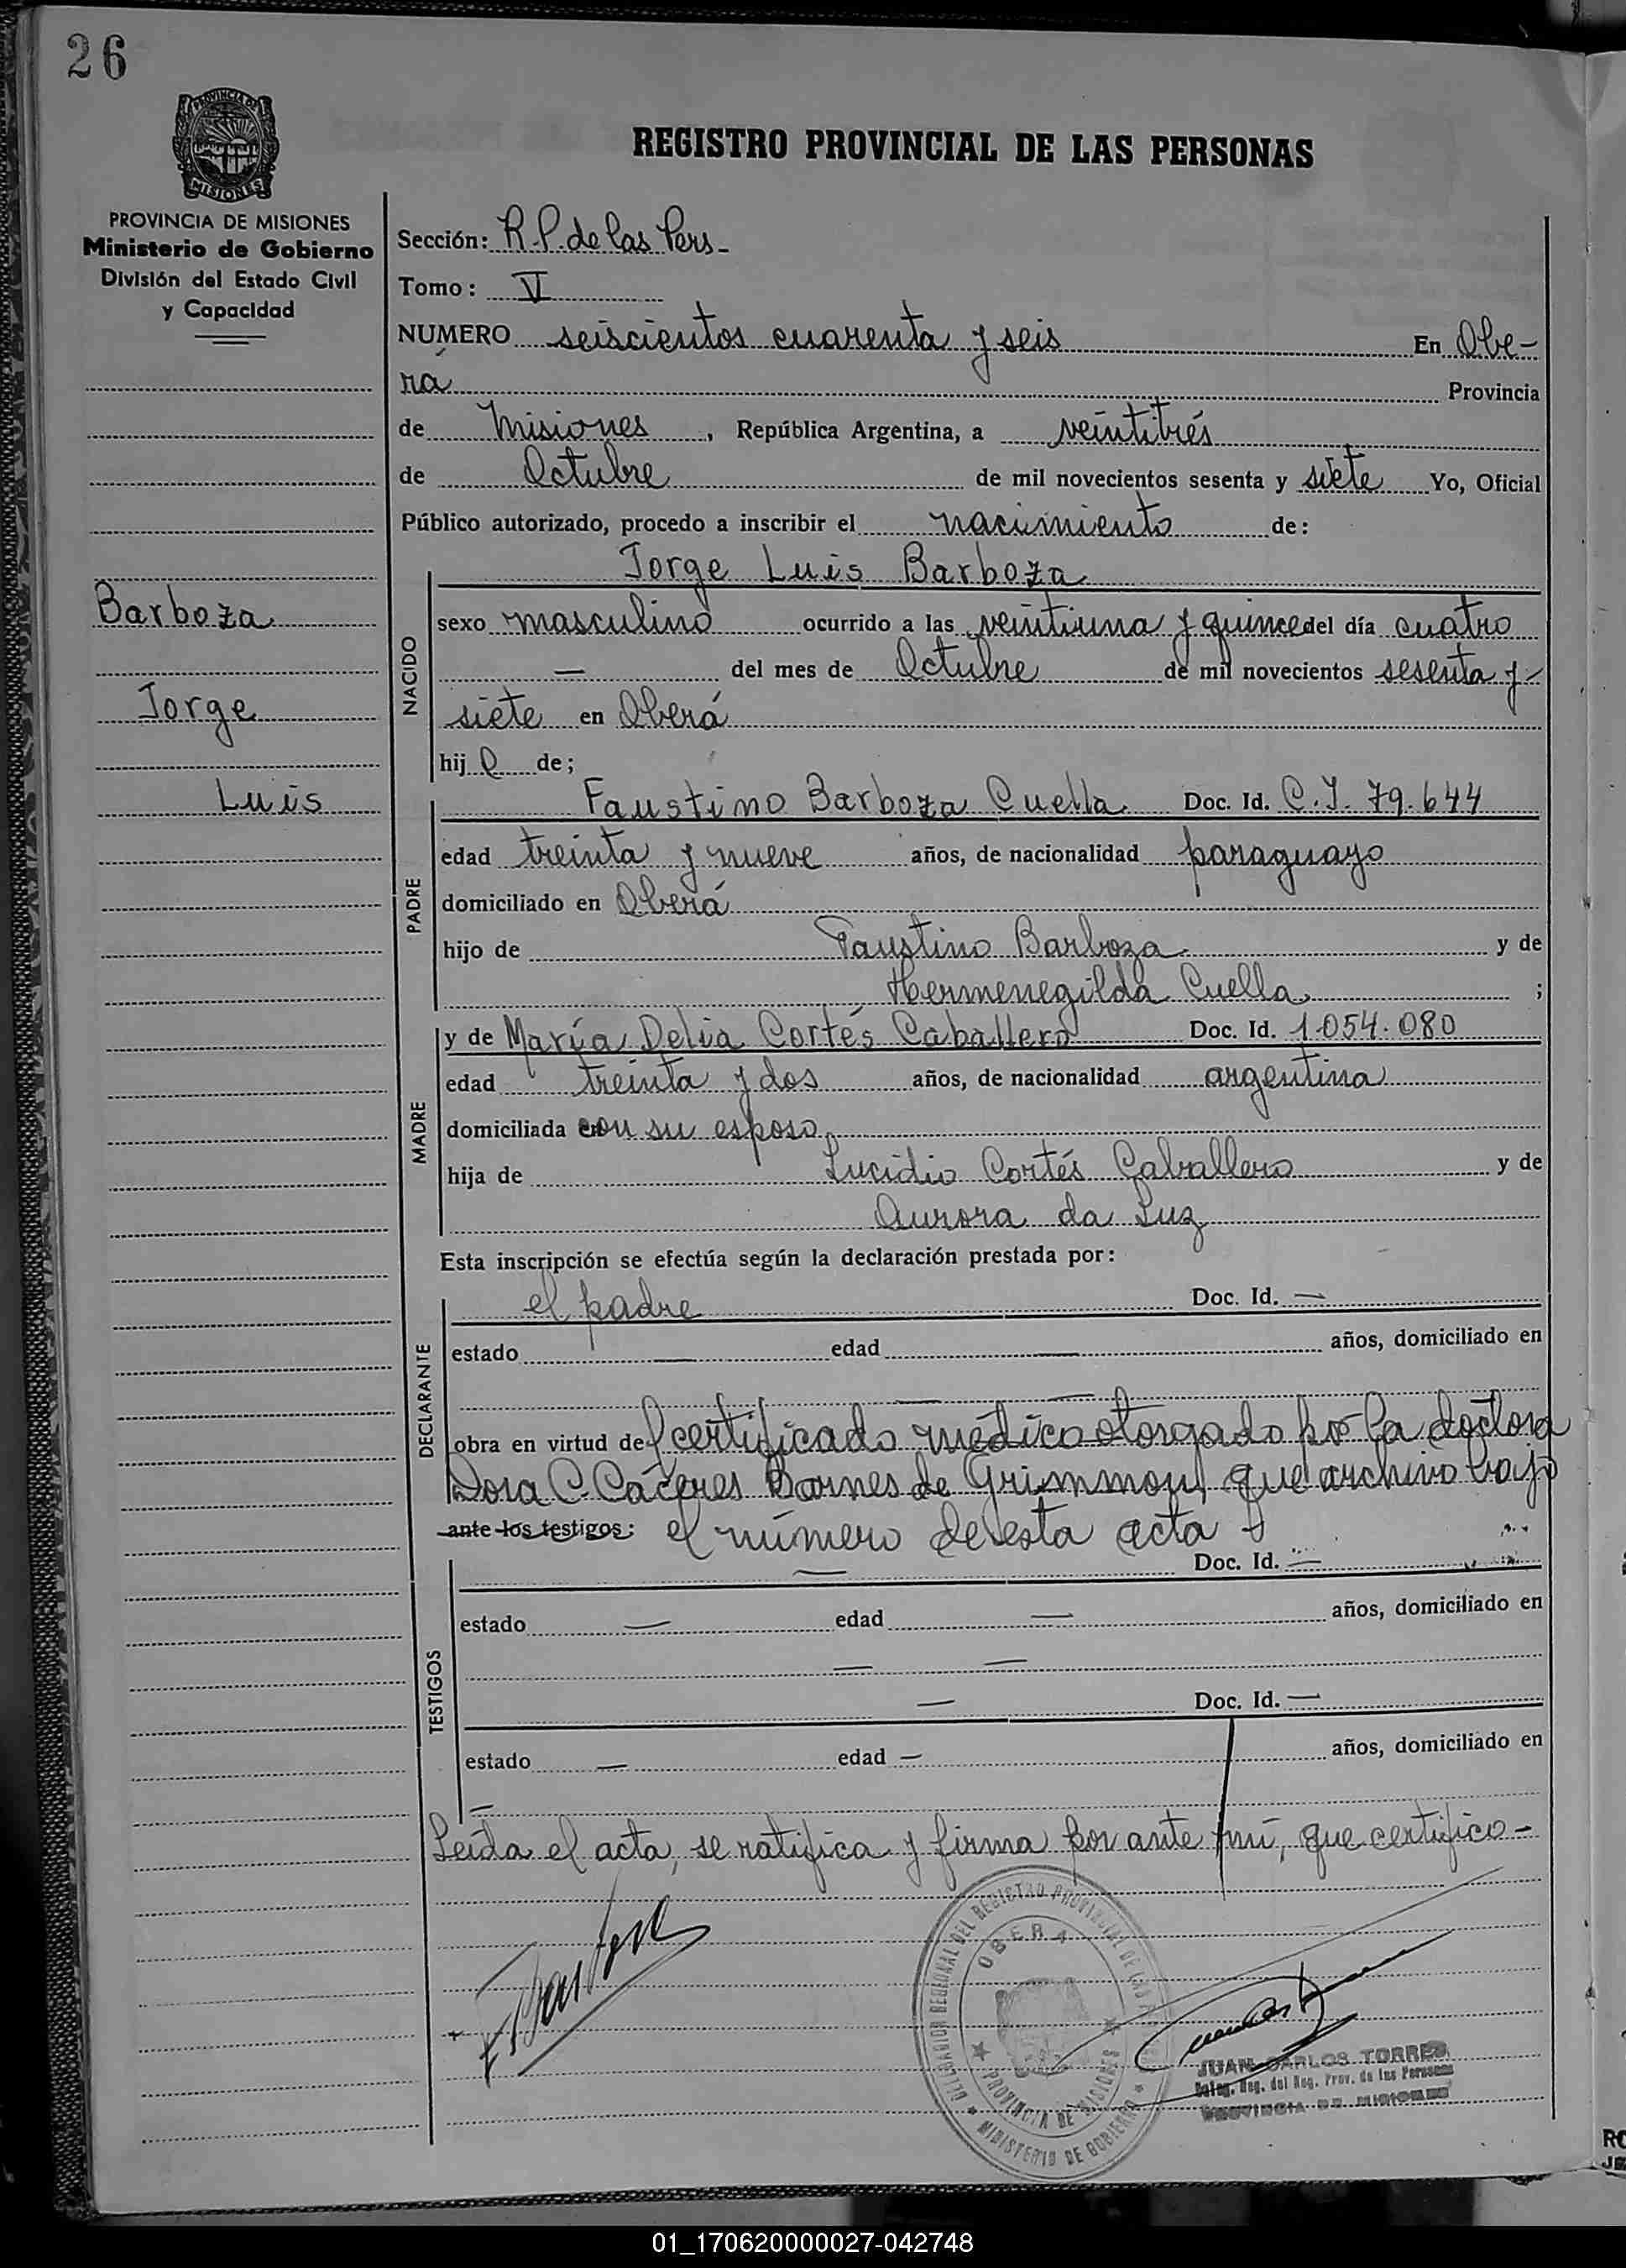 26
PROVINCIA DE
MISIONES
REGISTRO PROVINCIAL DE LAS PERSONAS
PROVINCIA DE MISIONES
Ministerio de Gobierno
División del Estado Civil
y Capacidad
Sección: R.P. de las Pers-
Tomo: VI
NUMERO seiscientos cuarenta y seis En Obe-
rá Provincia
de Misiones, República Argentina, a veintitrés
de Octubre de mil novecientos sesenta y siete Yo, Oficial
Público autorizado, procedo a inscribir el nacimiento de:
Jorge Luis Barboza
Barboza
Jorge
Luis
NACIDO
sexo masculino ocurrido a las veintiuna y quince del día cuatro
— del mes de Octubre de mil novecientos sesenta y-
siete en Oberá
hijo de;
Faustino Barboza Cuella Doc. Id. C.I. 79.644
PADRE
edad treinta y nueve años, de nacionalidad paraguayo
domiciliado en Oberá
hijo de Faustino Barboza y de
Hermenegilda Cuella ;
y de María Delia Cortés Caballero Doc. Id. 1.054.080
MADRE
edad treinta y dos años, de nacionalidad argentina
domiciliada con su esposo
hija de Lucidio Cortés Caballero y de
Aurora da Luz
Esta inscripción se efectúa según la declaración prestada por:
el padre Doc. Id. —
DECLARANTE
estado — edad — años, domiciliado en
— —
obra en virtud del certificado médico otorgado por la doctora
Dora C. Cáceres Barnes de Grimmon, que archivo bajo
ante los testigos: el número de esta acta
— Doc. Id. —
TESTIGOS
estado — edad — años, domiciliado en
— —
— Doc. Id. —
estado — edad — años, domiciliado en
—
Leída el acta, se ratifica y firma por ante mí, que certifico-
DELEGACION REGIONAL DEL REGISTRO PROVINCIAL DE LAS
OBERA
PROVINCIA DE MISIONES
MINISTERIO DE GOBIERNO
JUAN CARLOS TORRES
Deleg. Reg. del Reg. Prov. de las Personas
PROVINCIA DE MISIONES
01_170620000027-042748